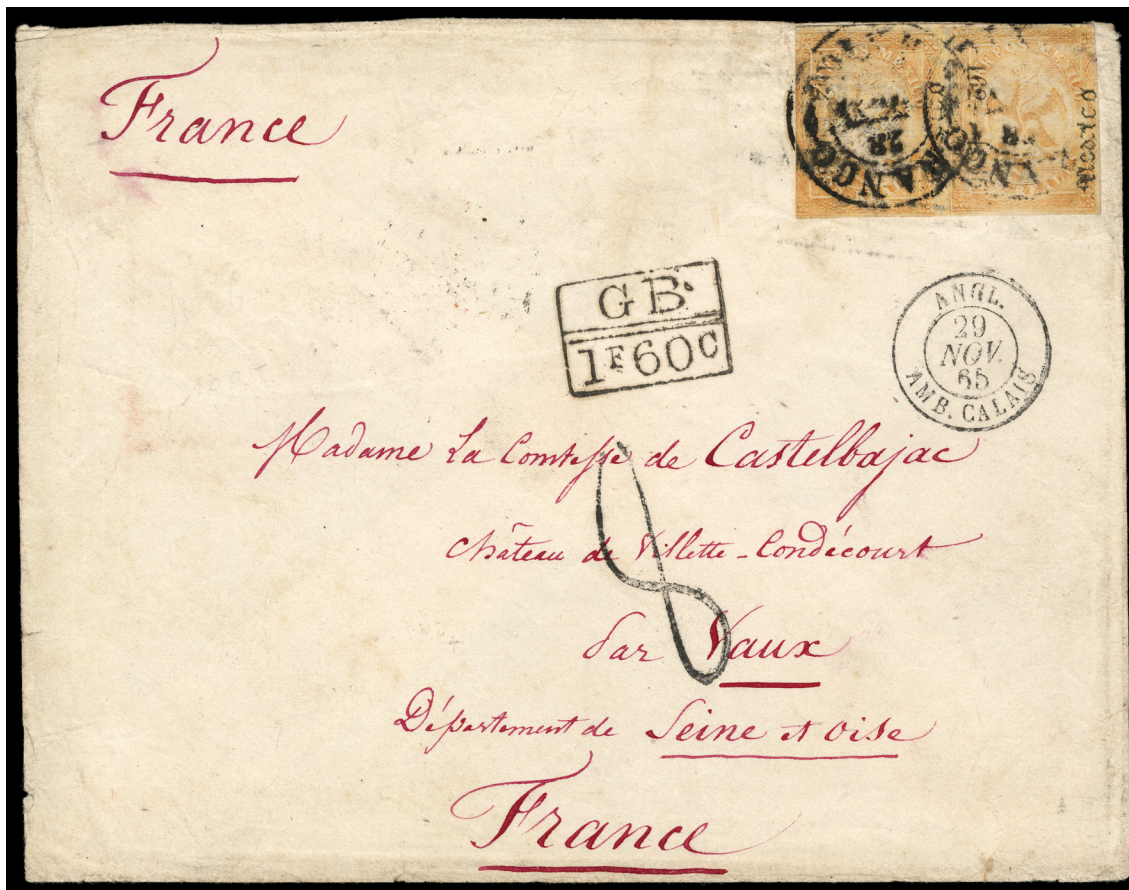 France
FRANCO
28
MEXICO
GB.
1F60C
ANGL.
29
NOV.
65
AMB. CALAIS
Madame La Comtesse de Castelbajac
8
Château de Villette-Condécourt
par Vaux
Département de Seine et Oise
France